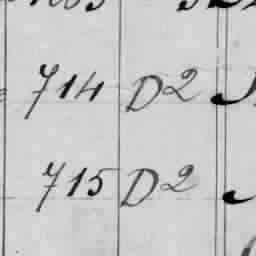 714 D2
715 D2